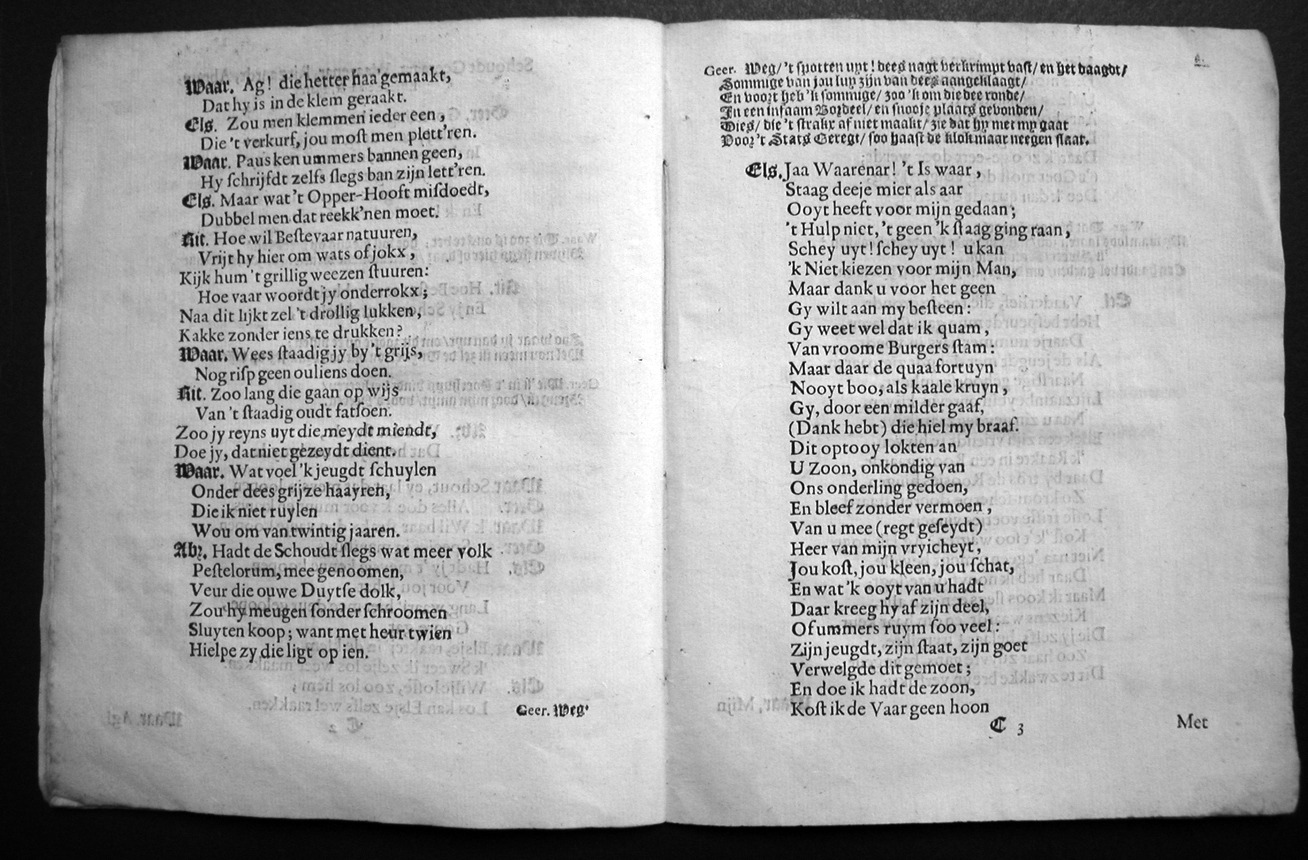 Waar. Ag! die hetter haa'gemaakt,
Dat hy is in de klem geraakt.
Els. Zou men klemmen ieder een,
Die 't verkurf, jou most men plett'ren.
Waar. Paus ken ummers bannen geen,
Hy schrijfdt zelfs slegs ban zijn lett'ren.
Els. Maar wat 't Opper-Hooft misdoedt,
Dubbel men dat reekk'nen moet.
Kit. Hoe wil Bestevaar natuuren,
Vrijt hy hier om wats of jokx,
Kijk hum 't grillig weezen stuuren:
Hoe vaar woordt jy onderrokx;
Naa dit lijkt zel 't drollig lukken,
Kakke zonder iens te drukken?
Waar. Wees staadig jy by 't grijs,
Nog risp geen ouliens doen.
Kit. Zoo lang die gaan op wijs
Van 't staadig oudt fatsoen.
Zoo jy reyns uyt die meydt miendt,
Doe jy, dat niet gezeydt dient.
Waar. Wat voel 'k jeugdt schuylen
Onder dees grijze haayren,
Die ik niet ruylen
Wou om van twintig jaaren.
Abr. Hadt de Schoudt slegs wat meer volk
Pestelorum, mee genoomen,
Veur die ouwe Duytse dolk,
Zou hy meugen sonder schroomen
Sluyten koop; want met heur twien
Hielpe zy die ligt op ien.
Geer. Weg'
Geer. Weg/ 't spotten uyt! dees nagt verkrimpt vast/ en het daagdt/
Sommige van jou luy zijn van dees aangeklaagt/
En voort heb 'k sommige/ zoo 'k om die dee ronde/
In een infaam Bordeel/ en snooje plaats gevonden/
Dies/ die 't strakx af niet maakt/ zie dat hy met my gaat
Voor 't Stats Geregt/ soo haast de klok maar neegen slaat.
Els. Jaa Waarenar! 't Is waar,
Staag deeje mier als aar
Ooyt heeft voor mijn gedaan;
't Hulp niet, 't geen 'k staag ging raan;
Schey uyt! schey uyt! u kan
'k Niet kiezen voor mijn Man,
Maar dank u voor het geen
Gy wilt aan my besteen:
Gy weet wel dat ik quam,
Van vroome Burgers stam:
Maar daar de quaa fortuyn
Nooyt boo, als kaale kruyn,
Gy, door een milder gaaf,
(Dank hebt) die hiel my braaf.
Dit optooy lokten an
U Zoon, onkondig van
Ons onderling gedoen,
En bleef zonder vermoen,
Van u mee (regt geseydt)
Heer van mijn vryicheyt,
Jou kost, jou kleen, jou schat,
En wat 'k ooyt van u hadt
Daar kreeg hy af zijn deel,
Of ummers ruym soo veel:
Zijn jeugdt, zijn staat, zijn goet
Verwelgde dit gemoet;
En doe ik hadt de zoon,
Kost ik de Vaar geen hoon
C 3
Met